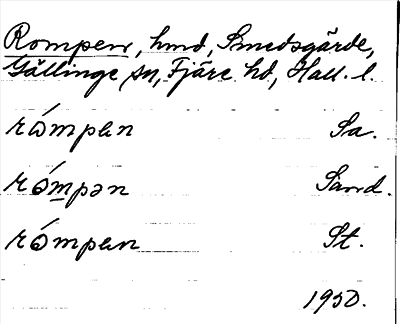 Rompen, hmd, Smedsgärde,
Gällinge sn, Fjäre hd, Hall. l.
rómpɐn Sa.
rómpən Sand.
rómpɐn St.
1950.